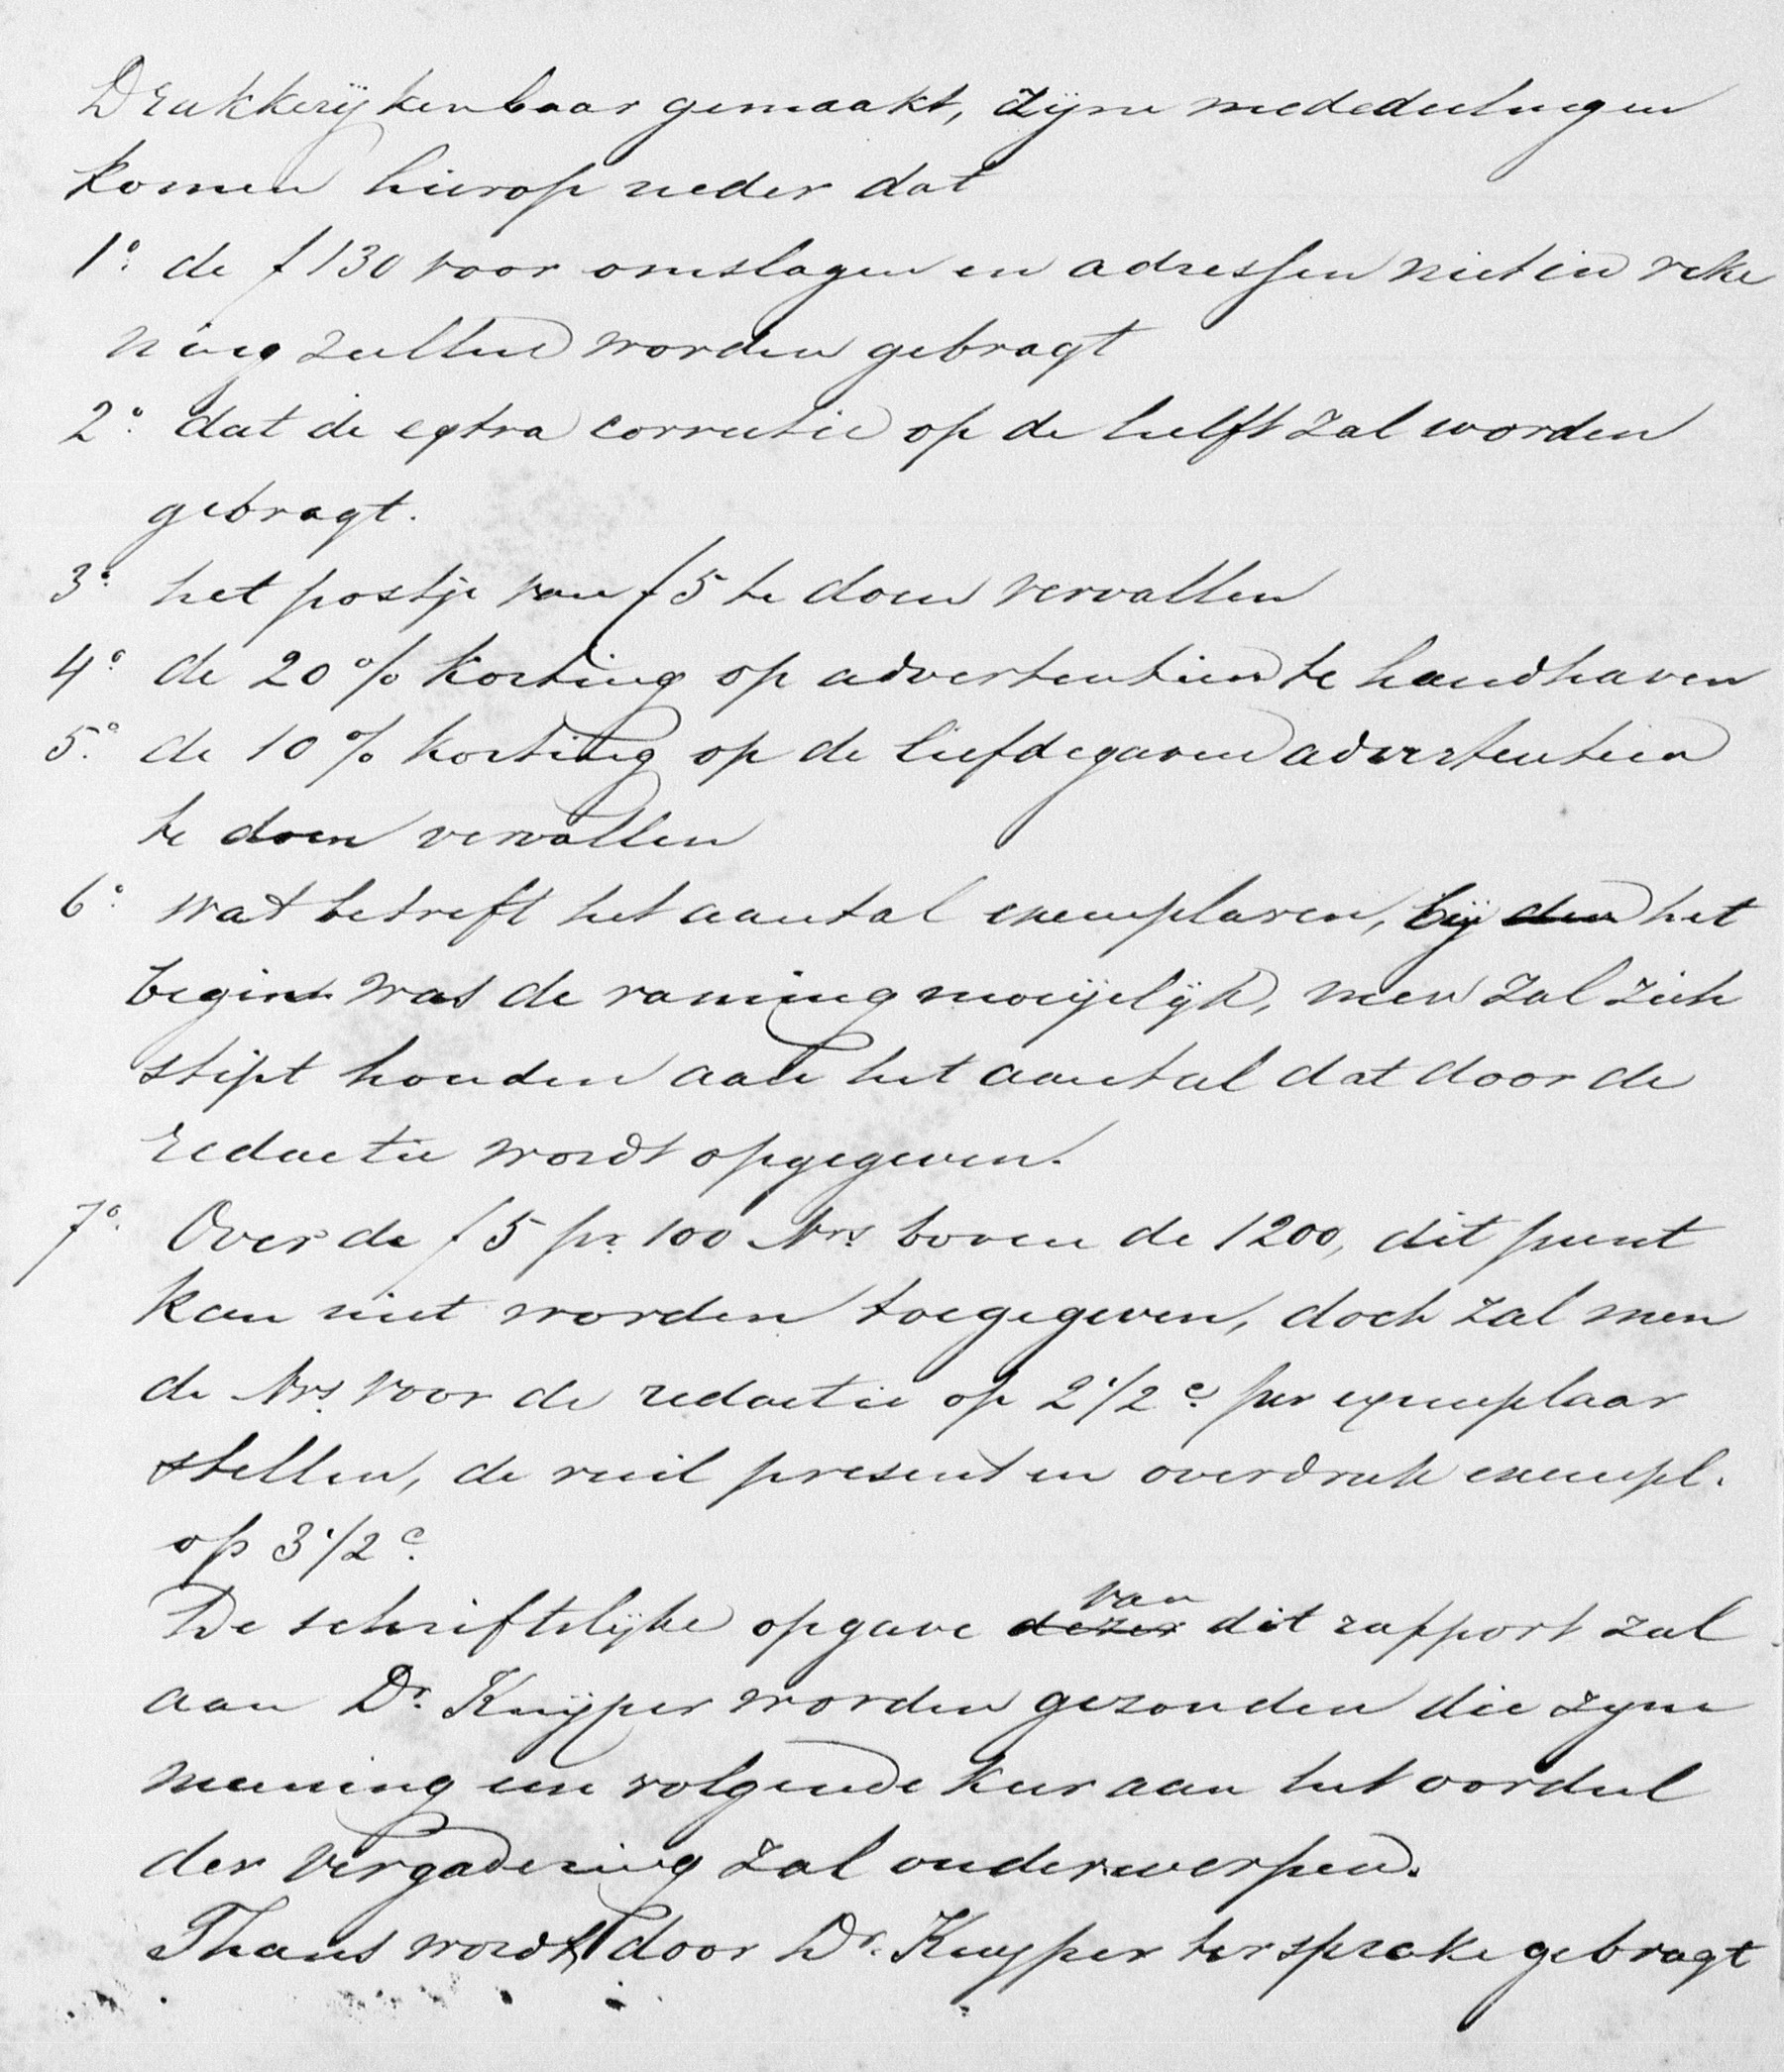 Drukkerij kenbaar gemaakt, zijne mededeelingen
komen hierop neder dat
1o. de f 130 voor omslagen en adressen niet in reke
ning zullen worden gebragt
2o. dat de extra correctie op de helft zal worden
gebragt.
3o. het postje van f 5 te doen vervallen
4o. de 20 % korting op advertentien te handhaven
5o. de 10 % korting op de liefdegaven advertentien
te doen vervallen
6o. wat betreft het aantal exemplaren, bij den het
begin was de raming moeijelijk, men zal zich
stipt houden aan het aantal dat door de
redactie wordt opgegeven.
7o. Over de f 5 pr. 100 Nrs. boven de 1200, dit punt
kan niet worden toegegeven, doch zal men
de Nrs. voor de redactie op 2 1/2 c. per exemplaar
stellen, de ruil present en overdruk exempl.
op 3 1/2 c.
De schriftelijke opgave dezer van dit rapport zal
aan Dr. Kuijper worden gezonden die zijne
meening een volgende keer aan het oordeel
der vergadering zal onderwerpen.
Thans wordt door Dr. Kuyper ter sprake gebragt